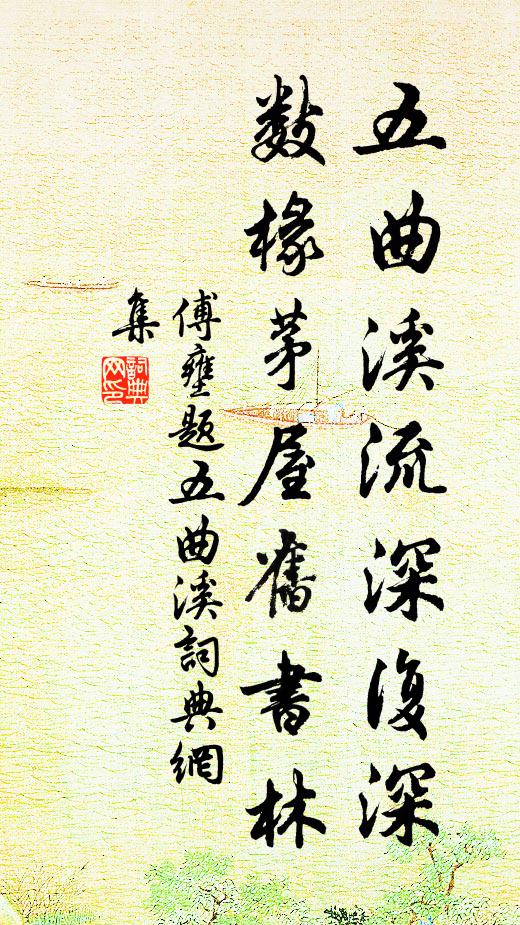 五曲溪流深復深
數椽茅屋舊書林
傅壅題五曲溪詞典網
集
詞典網印